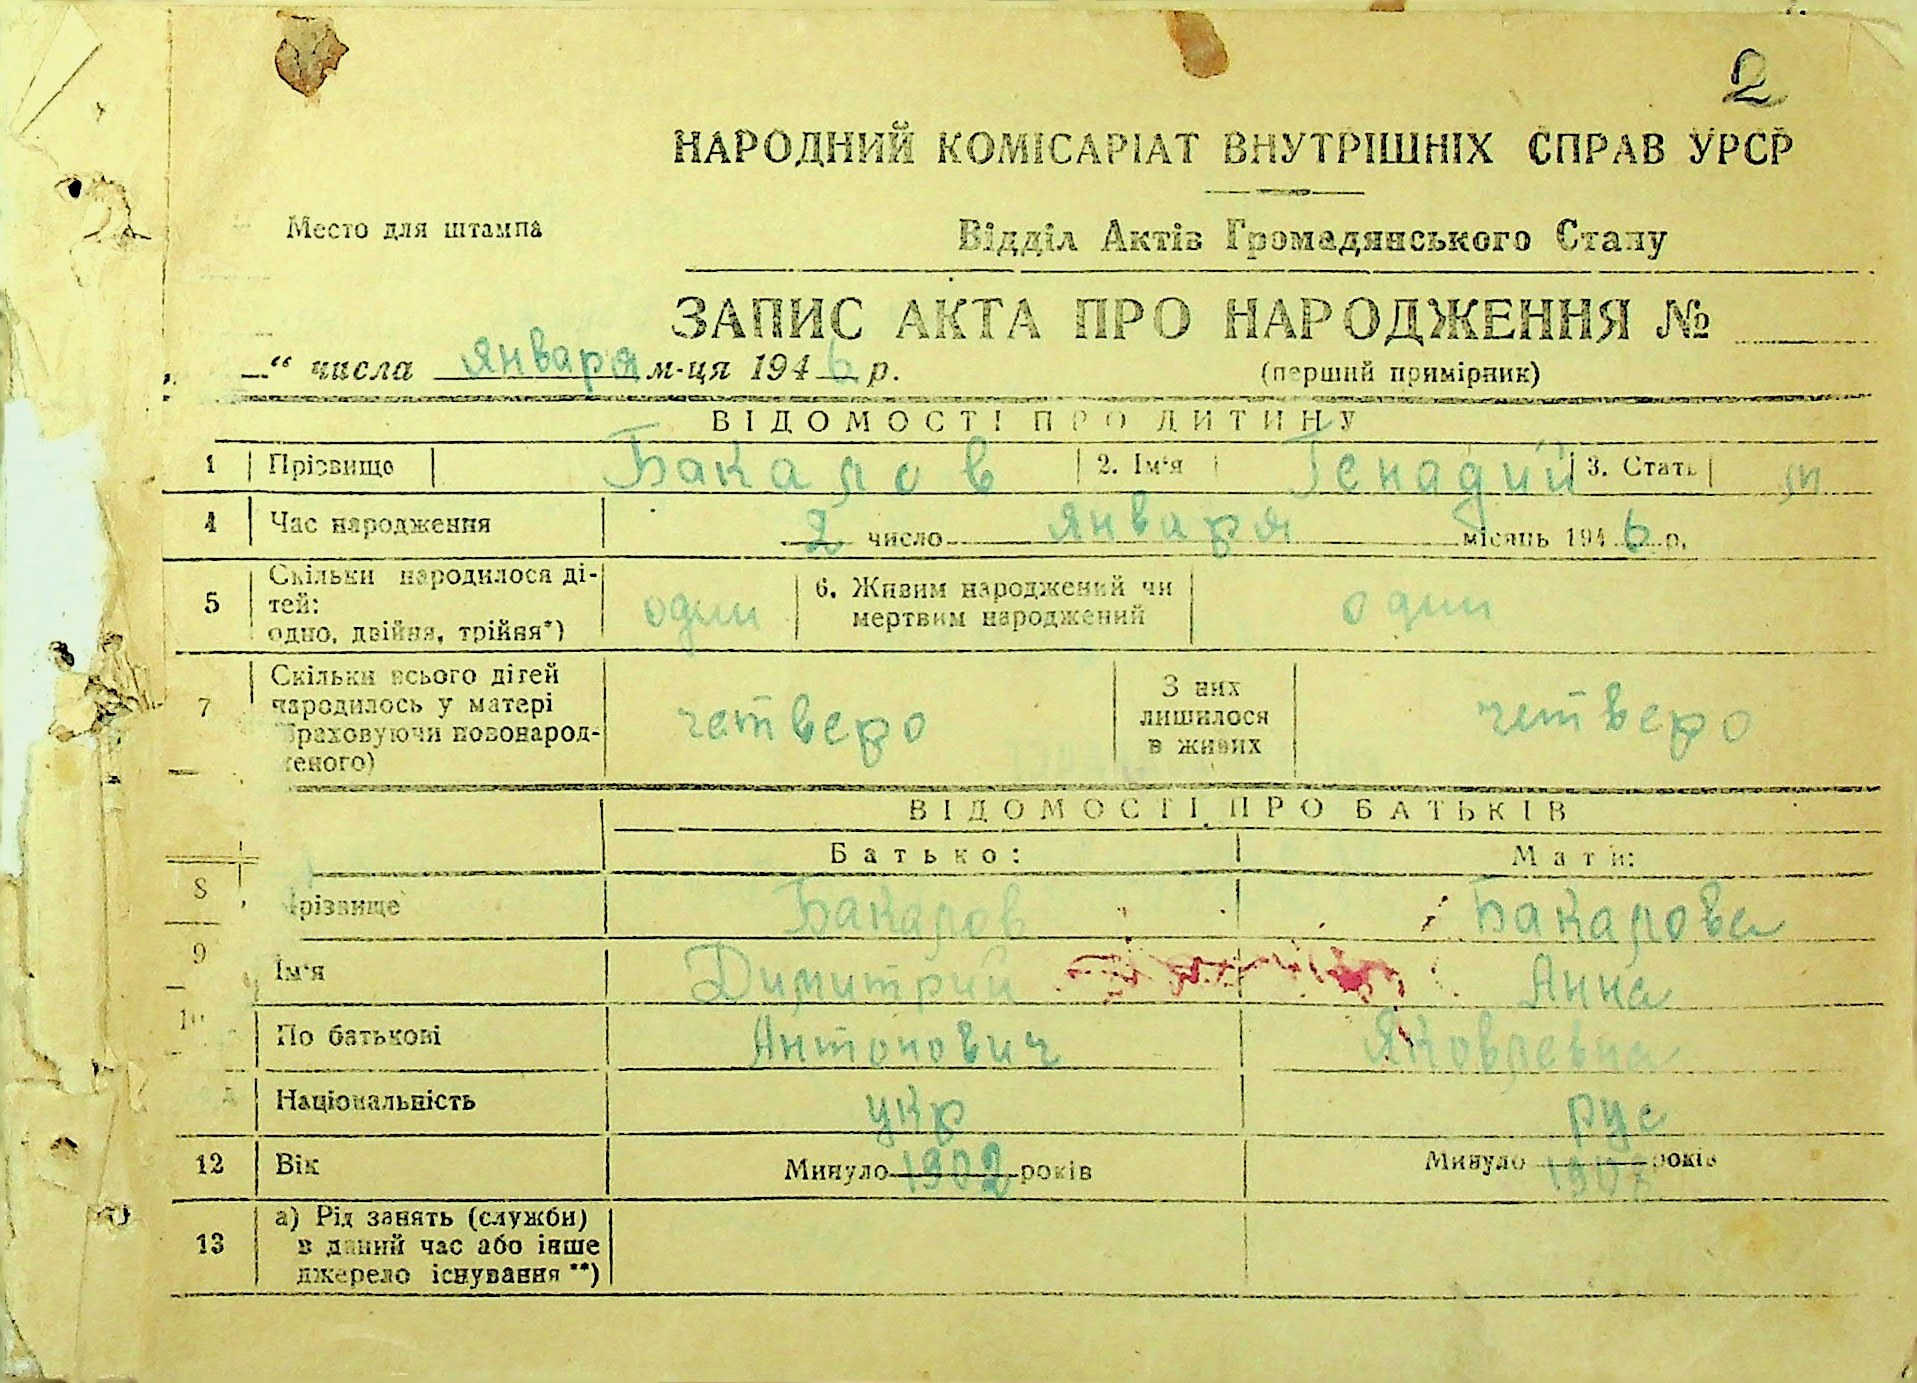 2
НАРОДНИЙ КОМІСАРІАТ ВНУТРІШНІХ СПРАВ УРСР
Место для штампа
Відділ Актів Громадянського Стану
ЗАПИС АКТА ПРО НАРОДЖЕННЯ №
“ числа января м-ця 1946 р.
(перший примірник)
ВІДОМОСТІ ПРО ДИТИНУ
1 Прізвище Бакалов 2. Ім'я Генадий 3. Стать м
4 Час народження 2 число января місяць 1946 р.
5 Скільки народилося ді-
тей:
одно, двійня, трійня*) один 6. Живим народжений чи
мертвим народжений один
7 Скільки всього дітей
народилось у матері
враховуючи новонарод-
женого) четверо З них
лишилося
в живих четверо
ВІДОМОСТІ ПРО БАТЬКІВ
Батько: Мати:
8 Прізвище Бакалов Бакалова
9 Ім'я Димитрий Анна
10 По батькові Антонович Яковлевна
Національність укр рус
12 Вік Минуло 1902 років Минуло років
13 а) Рід занять (служби)
в даний час або інше
джерело існування **)